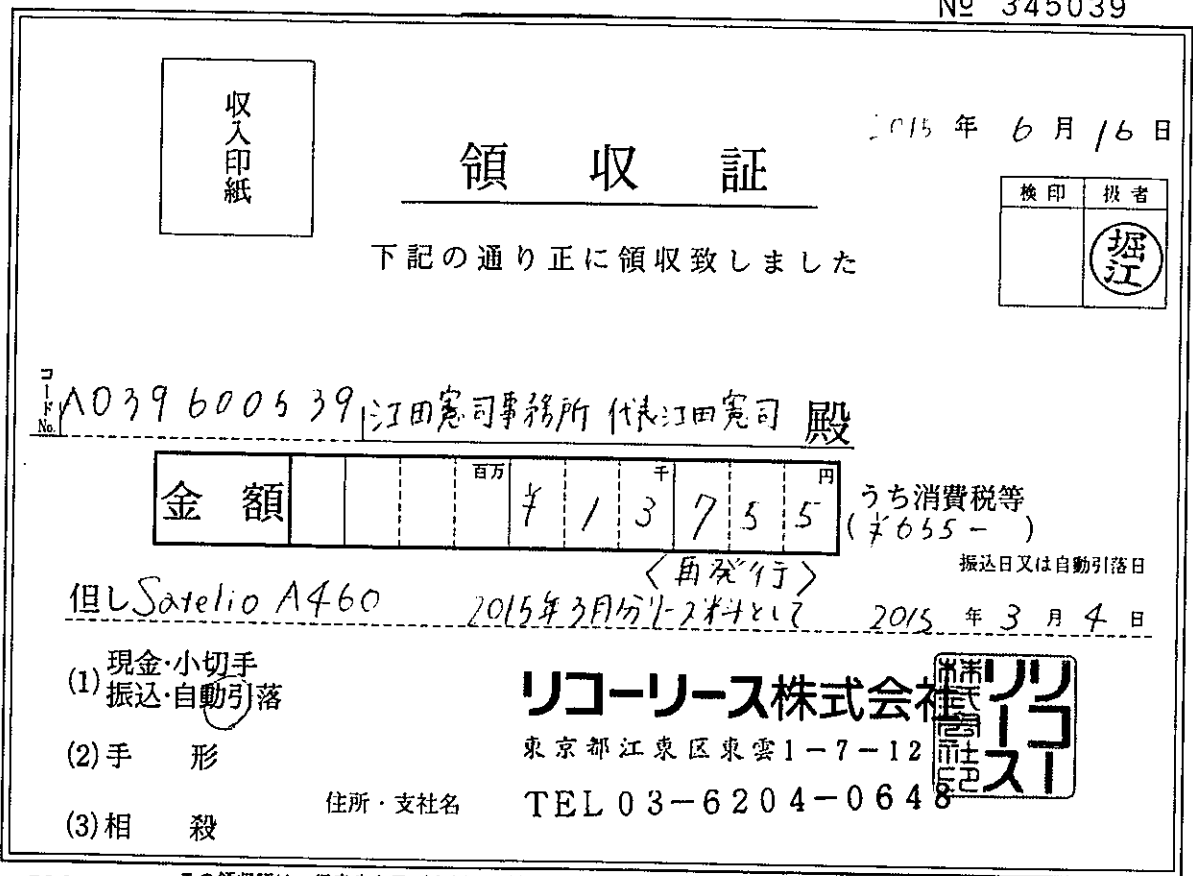 № 345039
収入印紙
2015 年 6 月 16 日
領 収 証
検印 扱者
堀江
下記の通り正に領収致しました
コードNo. A0396005 39 江田憲司事務所 代表江田憲司 殿
金 額 百万 千 円 ¥13755 うち消費税等
(¥655- )
〈再発行〉 振込日又は自動引落日
但し Satelio A460 2015年3月分リース料として 2015 年 3 月 4 日
(1) 現金・小切手
振込・自動引落
リコーリース株式会社
(2) 手 形
東京都江東区東雲1-7-12
住所・支社名 TEL 03-6204-0648
(3) 相 殺
リコーリース